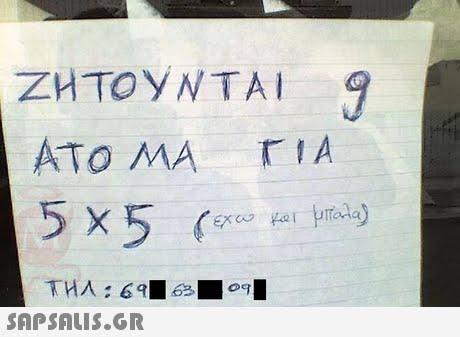 ΖΗΤΟΥΝΤΑΙ 9
ΑΤΟΜΑ ΓΙΑ
5 X 5 (εχω και μπαλα)
ΤΗΛ: 69 63 09
SAPSALIS.GR